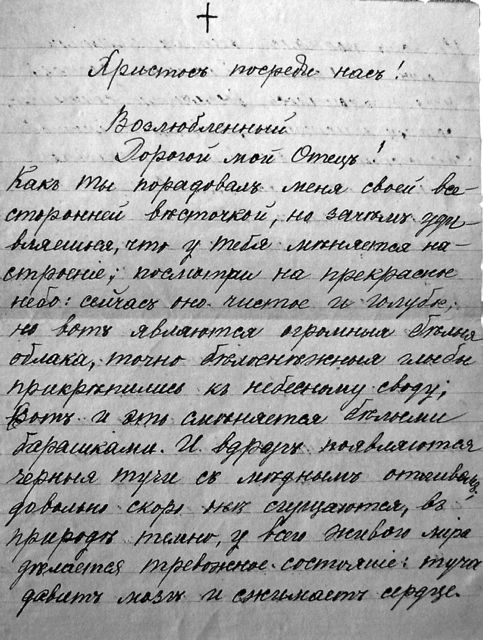 Христосъ посредѣ насъ!
Возлюбленный
Дорогой мой Отецъ!
Какъ ты порадовалъ меня своей все-
сторонней вѣсточкой, но зачѣмъ уди-
вляешься, что у тебя мѣняется на-
строеніе; посмотри на прекрасное
небо: сейчасъ оно чистое и голубое,
но вотъ являются огромныя бѣлыя
облака, точно бѣлоснѣжныя глыбы
прикрѣпились къ небесному своду;
вотъ и это смѣняется бѣлыми
барашками. И вдругъ появляются
черныя тучи съ мѣднымъ отливомъ,
довольно скоро онѣ сгущаются, въ
природѣ темно, у всего живого міра
дѣлается тревожное состояніе: туча
давитъ мозгъ и сжимаетъ сердце.